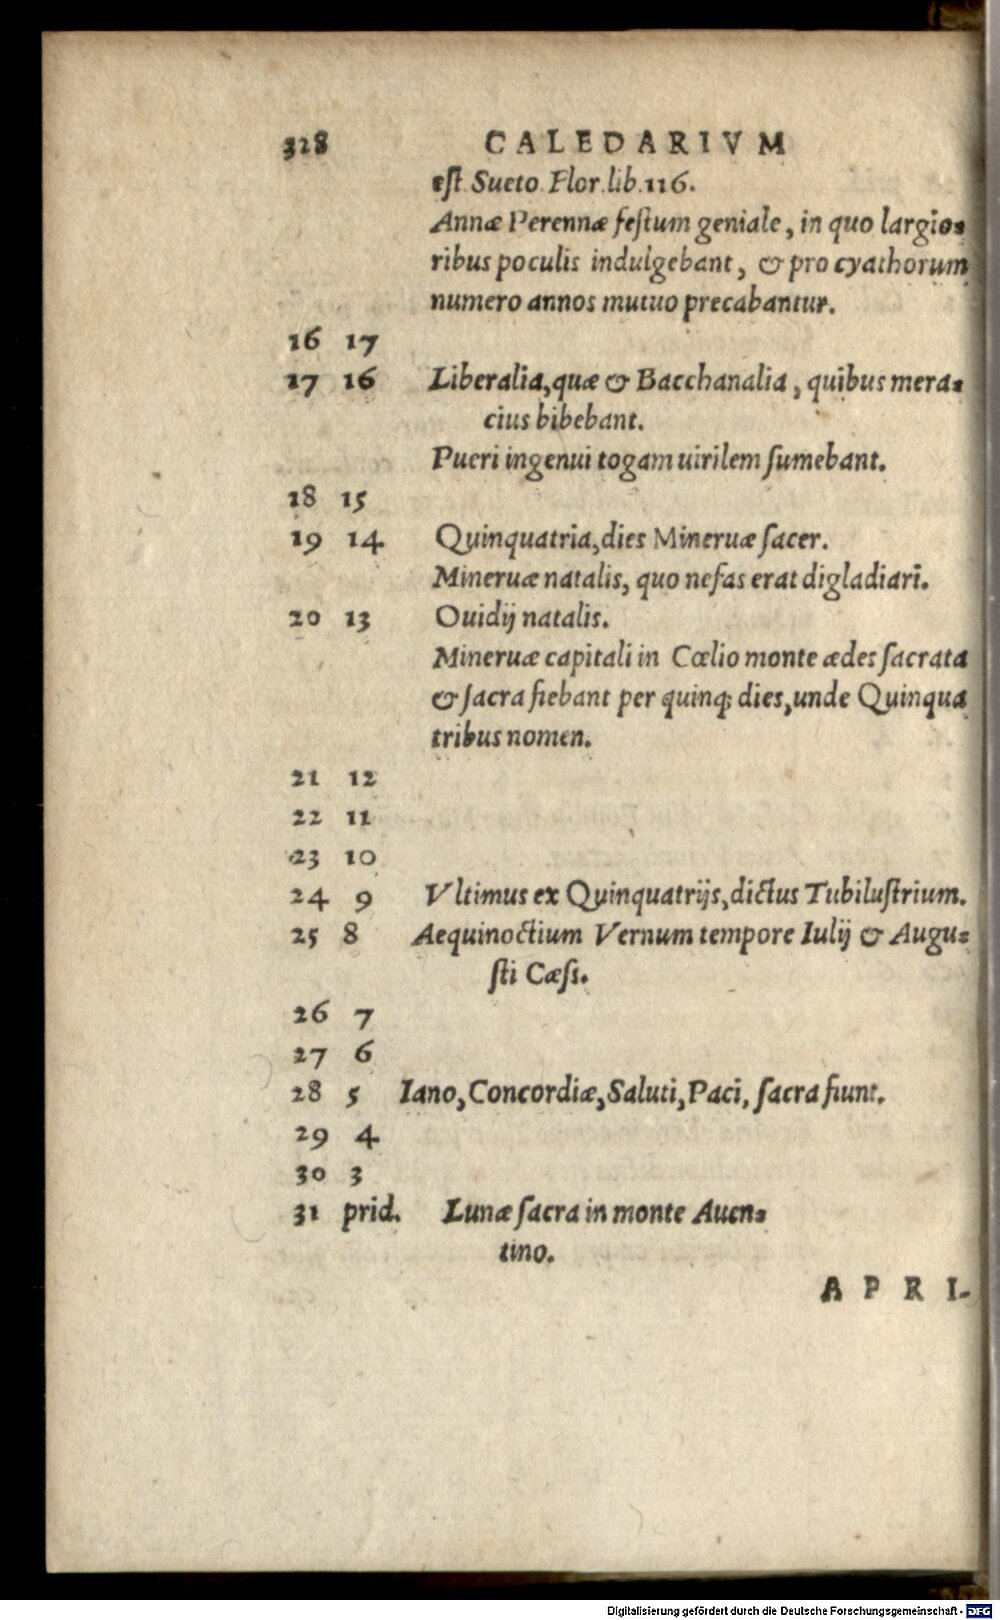 328 CALEDARIVM
est Sueto. Flor. lib. 116.
Annæ Perennæ festum geniale, in quo largio-
ribus poculis indulgebant, & pro cyathorum
numero annos mutuo precabantur.
16 17
17 16 Liberalia, quæ & Bacchanalia, quibus mera-
cius bibebant.
Pueri ingenui togam uirilem sumebant.
18 15
19 14 Quinquatria, dies Mineruæ sacer.
Mineruæ natalis, quo nefas erat digladiari.
20 13 Ouidij natalis.
Mineruæ capitali in Cœlio monte ædes sacrata
& sacra fiebant per quinq; dies, unde Quinqua
tribus nomen.
21 12
22 11
23 10
24 9 Vltimus ex Quinquatrijs, dictus Tubilustrium.
25 8 Aequinoctium Vernum tempore Iulij & Augu-
sti Cæss.
26 7
27 6
28 5 Iano, Concordiæ, Saluti, Paci, sacra fiunt.
29 4
30 3
31 prid. Lunæ sacra in monte Auen-
tino.
APRI-
Digitalisierung gefördert durch die Deutsche Forschungsgemeinschaft - DFG